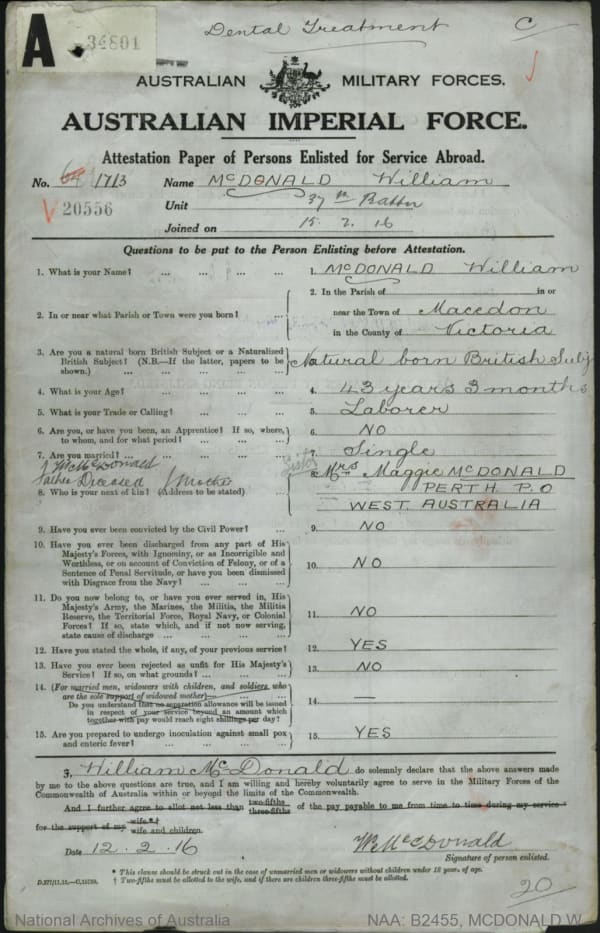 A 34801
Dental Treatment C
AUSTRALIAN MILITARY FORCES.
AUSTRALIAN IMPERIAL FORCE.
Attestation Paper of Persons Enlisted for Service Abroad.
No. 64 1713 Name McDONALD William
20556 Unit 37th Battn
Joined on 15.2.16
Questions to be put to the Person Enlisting before Attestation.
1. What is your Name? ... ... ... ... 1. McDONALD William
2. In the Parish of in or
2. In or near what Parish or Town were you born? ... near the Town of Macedon
in the County of Victoria
3. Are you a natural born British Subject or a Naturalized
British Subject? (N.B.—If the latter, papers to be
shown.) ... ... ... ... Natural born British Subj
4. What is your Age? ... ... ... ... 4. 43 years 3 months
5. What is your Trade or Calling? ... ... ... 5. Laborer
6. Are you, or have you been, an Apprentice? If so, where,
to whom, and for what period? ... ... ... 6. NO
7. Are you married? ... ... ... ... 7. Single
McDonald
Father Deceased Mother Sister
8. Who is your next of kin? (Address to be stated) ... 8. Mrs Maggie McDONALD
PERTH P.O
WEST AUSTRALIA
9. Have you ever been convicted by the Civil Power? ... 9. NO
10. Have you ever been discharged from any part of His
Majesty's Forces, with Ignominy, or as Incorrigible and
Worthless, or on account of Conviction of Felony, or of a
Sentence of Penal Servitude, or have you been dismissed
with Disgrace from the Navy? ... ... ... 10. NO
11. Do you now belong to, or have you ever served in, His
Majesty's Army, the Marines, the Militia, the Militia
Reserve, the Territorial Force, Royal Navy, or Colonial
Forces? If so, state which, and if not now serving,
state cause of discharge ... ... ... ... 11. NO
12. Have you stated the whole, if any, of your previous service? 12. YES
13. Have you ever been rejected as unfit for His Majesty's
Service? If so, on what grounds? ... ... ... 13. NO
14. (For married men, widowers with children, and soldiers who
are the sole support of widowed mother)—
Do you understand that no separation allowance will be issued
in respect of your service beyond an amount which
together with pay would reach eight shillings per day? 14. —
15. Are you prepared to undergo inoculation against small pox
and enteric fever? ... ... ... ... 15. YES
I, William McDonald do solemnly declare that the above answers made
by me to the above questions are true, and I am willing and hereby voluntarily agree to serve in the Military Forces of the
Commonwealth of Australia within or beyond the limits of the Commonwealth.
And I further agree to allot not less than two-fifths three-fifths of the pay payable to me from time to time during my service
for the support of my wife.*† wife and children.
Date 12.2.16 W McDonald
Signature of person enlisted.
* This clause should be struck out in the case of unmarried men or widowers without children under 18 years of age.
† Two-fifths must be allotted to the wife, and if there are children three-fifths must be allotted.
20
National Archives of Australia NAA: B2455, MCDONALD W